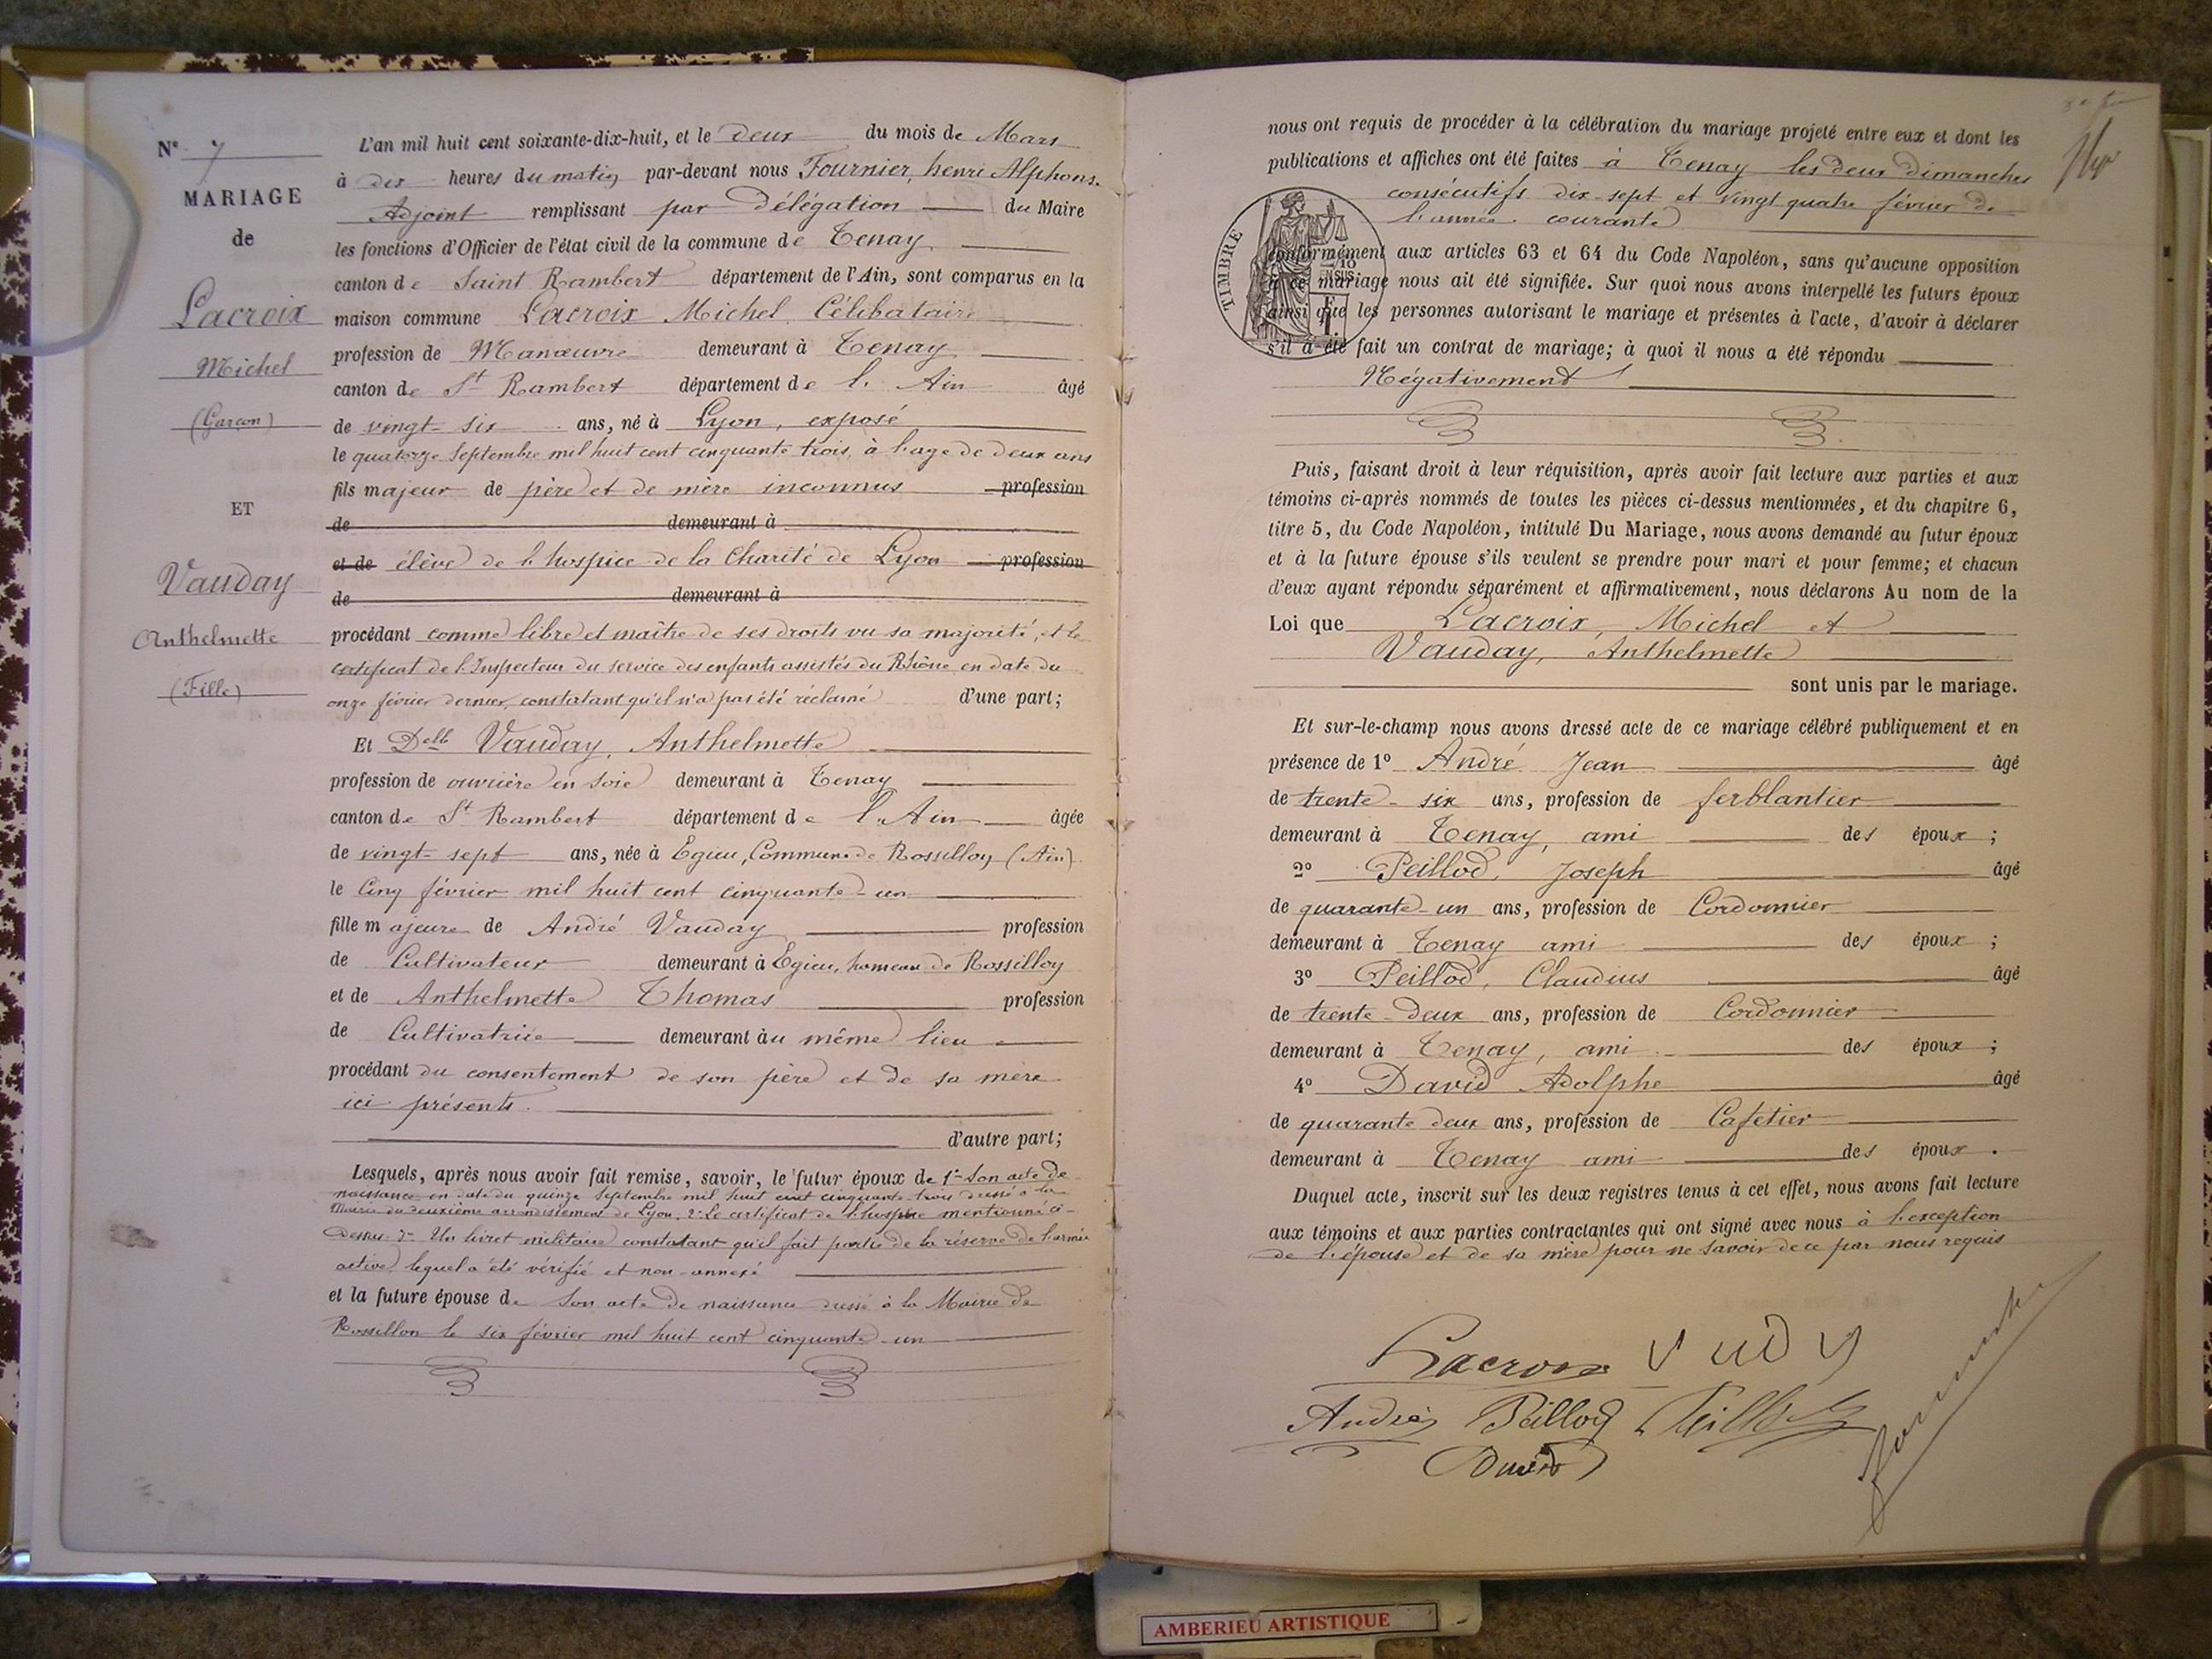 N° 7
MARIAGE
de
Lacroix
Michel
(Garçon)
ET
Vauday
Anthelmette
(Fille)
L'an mil huit cent soixante-dix-huit, et le deux du mois de Mars
à dix heures du matin par-devant nous Fournier, henri Alphons.
Adjoint remplissant par Délégation du Maire
les fonctions d'Officier de l'état civil de la commune de Tenay
canton de Saint Rambert département de l'Ain, sont comparus en la
maison commune Lacroix Michel Célibataire
profession de Manœuvre demeurant à Tenay
canton de St Rambert département de l'Ain âgé
de vingt-six ans, né à Lyon, exposé
le quatorze Septembre mil huit cent cinquante trois, à l'age de deux ans
fils majeur de père et de mère inconnus profession
de demeurant à
et de élève de l'hospice de la Charité de Lyon profession
de demeurant à
procédant comme libre et maître de ses droits vu sa majorité, et le
certificat de l'Inspecteur du service des enfants assistés du Rhône en date du
onze février dernier, constatant qu'il n'a pas été réclamé d'une part;
Et Delle Vauday, Anthelmette
profession de ouvrière en soie demeurant à Tenay
canton de St Rambert département de l'Ain âgée
de vingt-sept ans, née à Egieu, Commune de Rossillon (Ain)
le Cinq février mil huit cent cinquante-un
fille majeure de André Vauday profession
de Cultivateur demeurant à Egieu, hameau de Rossillon
et de Anthelmette Thomas profession
de Cultivatrice demeurant au même lieu
procédant du consentement de son père et de sa mère
ici présents.
d'autre part;
Lesquels, après nous avoir fait remise, savoir, le futur époux de 1° Son acte de
naissance en date du quinze Septembre mil huit cent cinquante-trois dressé à la
Mairie du deuxième arrondissement de Lyon. 2° Le certificat de l'hospice mentionné ci-
dessus. 3° Un livret militaire constatant qu'il fait partie de la réserve de l'armée
active lequel a été vérifié et non-annexé
et la future épouse de Son acte de naissance dressé à la Mairie de
Rossillon le six février mil huit cent cinquante-un
nous ont requis de procéder à la célébration du mariage projeté entre eux et dont les
publications et affiches ont été faites à Tenay les deux dimanches
consécutifs dix-sept et vingt quatre février de
l'année courante
TIMBRE
conformément aux articles 63 et 64 du Code Napoléon, sans qu'aucune opposition
à ce mariage nous ait été signifiée. Sur quoi nous avons interpellé les futurs époux
ainsi que les personnes autorisant le mariage et présentes à l'acte, d'avoir à déclarer
s'il a été fait un contrat de mariage; à quoi il nous a été répondu
Négativement
Puis, faisant droit à leur réquisition, après avoir fait lecture aux parties et aux
témoins ci-après nommés de toutes les pièces ci-dessus mentionnées, et du chapitre 6,
titre 5, du Code Napoléon, intitulé Du Mariage, nous avons demandé au futur époux
et à la future épouse s'ils veulent se prendre pour mari et pour femme; et chacun
d'eux ayant répondu séparément et affirmativement, nous déclarons Au nom de la
Loi que Lacroix, Michel et
Vauday, Anthelmette
sont unis par le mariage.
Et sur-le-champ nous avons dressé acte de ce mariage célébré publiquement et en
présence de 1° André Jean âgé
de trente-six ans, profession de ferblantier
demeurant à Tenay, ami des époux ;
2° Peillod, Joseph âgé
de quarante-un ans, profession de Cordonnier
demeurant à Tenay ami des époux ;
3° Peillod, Claudius âgé
de trente-deux ans, profession de Cordonnier
demeurant à Tenay, ami des époux ;
4° David Adolphe âgé
de quarante deux ans, profession de Cafetier
demeurant à Tenay ami des époux .
Duquel acte, inscrit sur les deux registres tenus à cet effet, nous avons fait lecture
aux témoins et aux parties contractantes qui ont signé avec nous à l'exception
de l'épouse et de sa mère pour ne savoir de ce par nous requis
Lacroix
André Peillod Peillod
David
AMBERIEU ARTISTIQUE